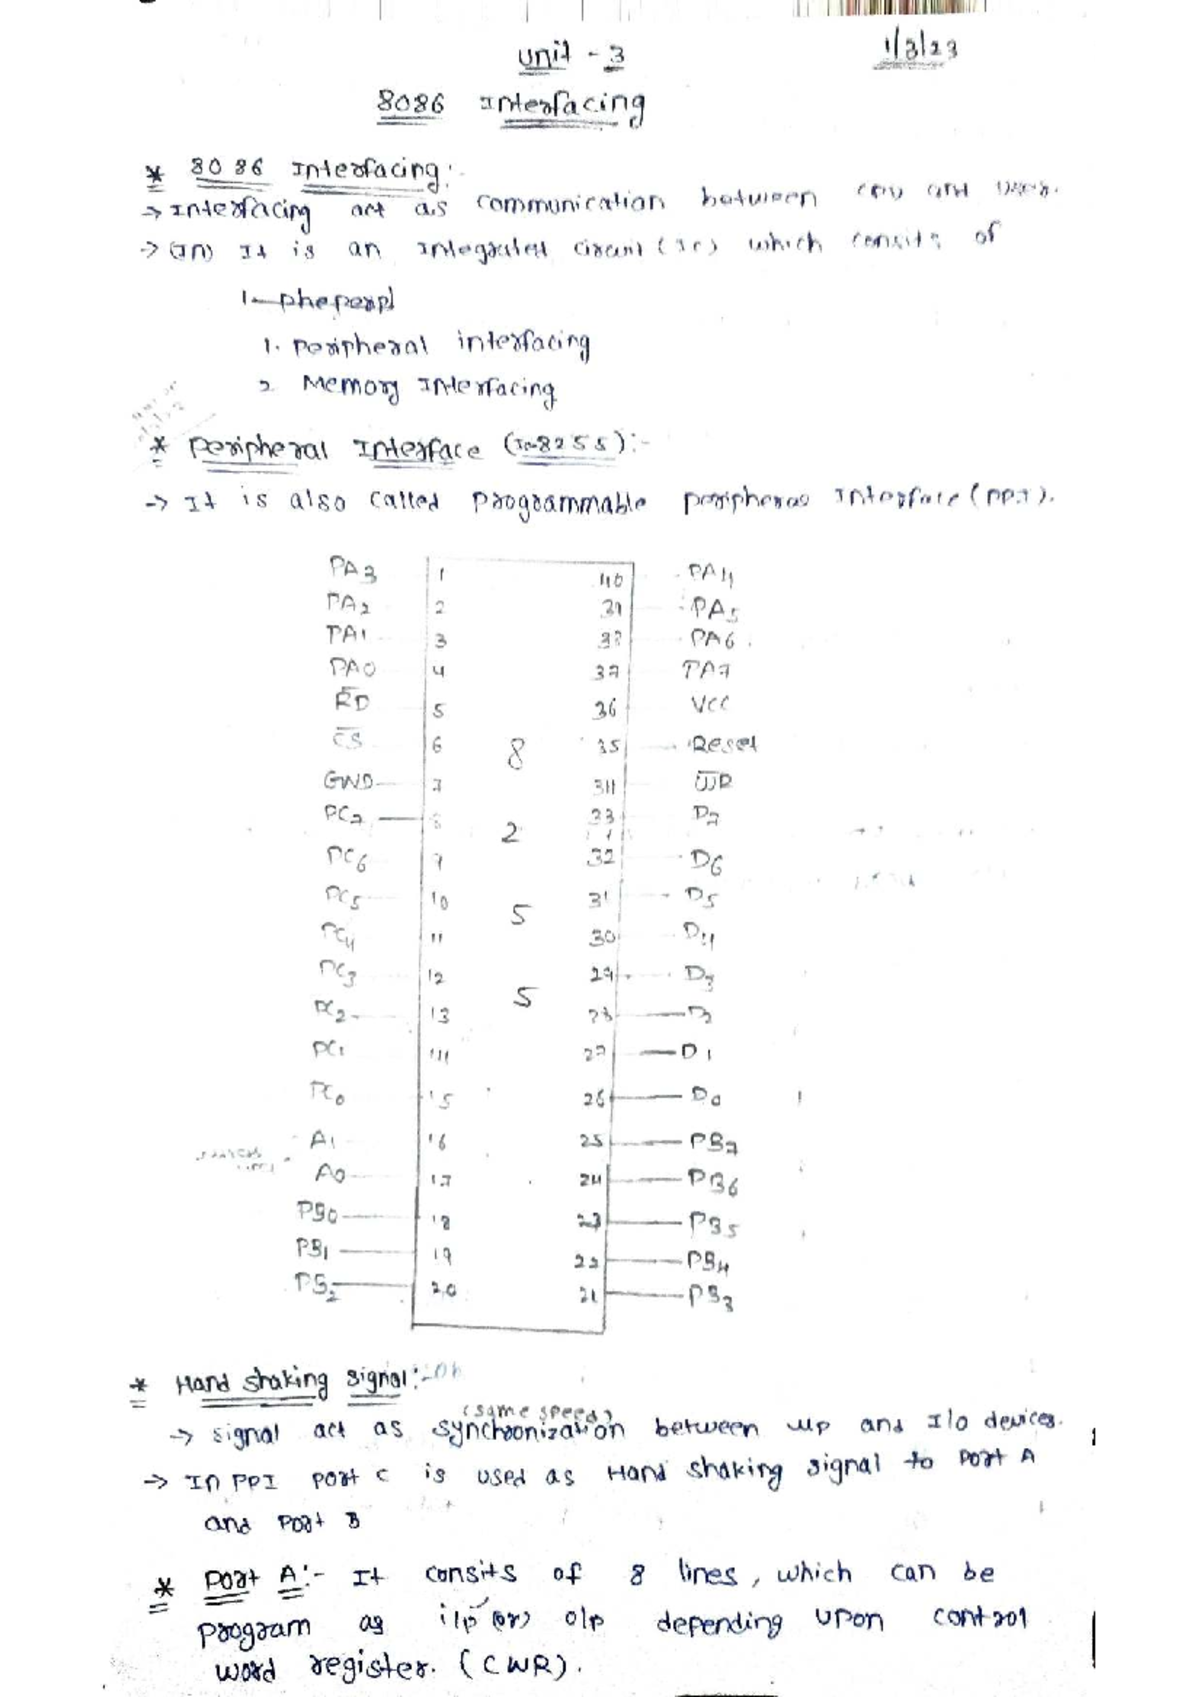 Unit - 3
1/3/23
8086 Interfacing
* 8086 Interfacing:-
→ Interfacing act as communication between CPU and users.
→ (In) It is an integrated circuit (IC) which consits of
1. pheperpl
1. Peripheral interfacing
2. Memory Interfacing
* Peripheral Interface (Ic-8255):-
→ It is also called programmable peripheral Interface (PPI).
PA3 1 40 PA4
PA2 2 39 PA5
PA1 3 38 PA6
PA0 4 37 PA7
R̅D̅ 5 36 VCC
C̅S̅ 6 35 Reset
GND 7 34 W̅R̅
PC7 8 33 D7
PC6 9 32 D6
PC5 10 31 D5
PC4 11 30 D4
PC3 12 29 D3
PC2 13 28 D2
PC1 14 27 D1
PC0 15 26 D0
A1 16 25 PB7
A0 17 24 PB6
PB0 18 23 PB5
PB1 19 22 PB4
PB2 20 21 PB3
8
2
5
5
* Hand shaking signal:-
(same speed)
→ signal act as synchronization between up and I/o devices.
→ In PPI port c is used as Hand shaking signal to Port A
and Port B
* Port A:- It consits of 8 lines, which can be
program as i/p (or) o/p depending upon control
word register. (CWR).